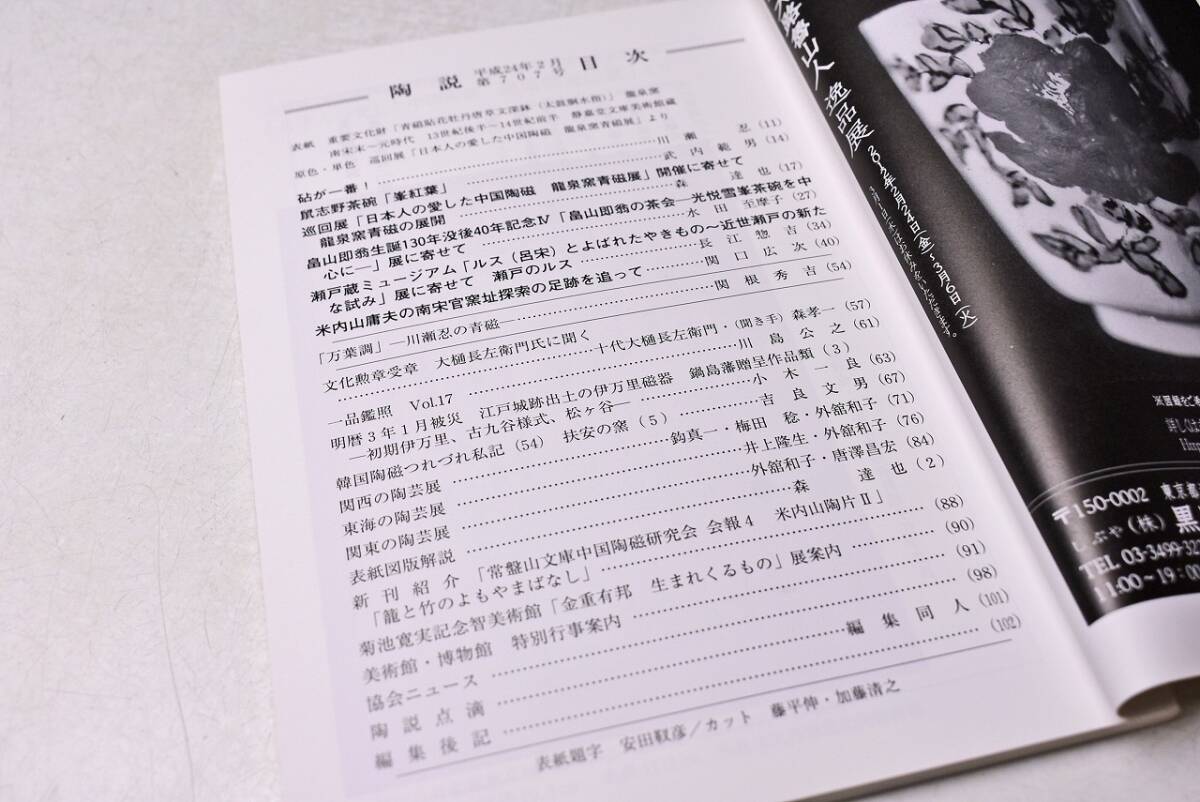 陶説 平成24年2月 第707号 目次
表紙 重要文化財「青磁貼花牡丹唐草文深鉢(太鼓胴水指)」 龍泉窯
南宋末〜元時代 13世紀後半〜14世紀前半 静嘉堂文庫美術館蔵
原色・単色 巡回展「日本人の愛した中国陶磁 龍泉窯青磁展」より
砧が一番!……川瀬忍(11)
鼠志野茶碗「峯紅葉」……武内範男(14)
巡回展「日本人の愛した中国陶磁 龍泉窯青磁展」開催に寄せて
龍泉窯青磁の展開……森達也(17)
畠山即翁生誕130年没後40年記念Ⅳ「畠山即翁の茶会―光悦雪峯茶碗を中
心に―」展に寄せて……水田至摩子(27)
瀬戸蔵ミュージアム「ルス(呂宋)とよばれたやきもの〜近世瀬戸の新た
な試み」展に寄せて 瀬戸のルス……長江惣吉(34)
米内山庸夫の南宋官窯址探索の足跡を追って……関口広次(40)
「万葉調」―川瀬忍の青磁……関根秀吉(54)
文化勲章受章 大樋長左衛門氏に聞く
……十代大樋長左衛門・(聞き手)森孝一(57)
一品鑑照 Vol.17……川島公之(61)
明暦3年1月被災 江戸城跡出土の伊万里磁器 鍋島藩贈呈作品類(3)
―初期伊万里、古九谷様式、松ヶ谷―……小木一良(63)
韓国陶磁つれづれ私記(54) 扶安の窯(5)……吉良文男(67)
関西の陶芸展……鈎真一・梅田稔・外舘和子(71)
東海の陶芸展……井上隆生・外舘和子(76)
関東の陶芸展……外舘和子・唐澤昌宏(84)
表紙図版解説……森達也(2)
新刊紹介「常盤山文庫中国陶磁研究会 会報4 米内山陶片Ⅱ」
「籠と竹のよもやまばなし」……(88)
菊池寛実記念智美術館「金重有邦 生まれくるもの」展案内……(90)
美術館・博物館 特別行事案内……(91)
協会ニュース……(98)
陶説点滴……編集同人(101)
編集後記……(102)
表紙題字 安田靫彦/カット 藤平伸・加藤清之
山人 逸品展
2012年2月24日(金)〜3月6日(火)
3月1日(木)はお休みをいただきます。
〒150-0002 東京都
しぶや(株)黒
TEL 03-3499-32
11:00〜19:0